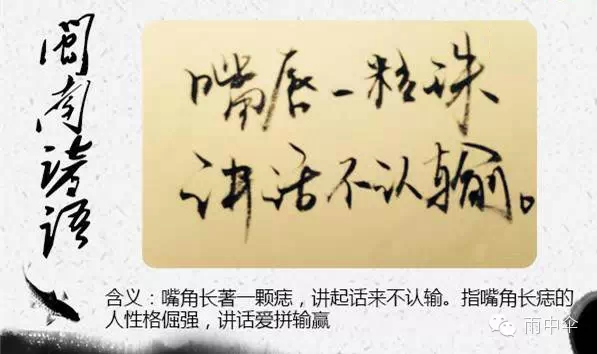 闽南谚语
嘴唇一粒珠
讲话不认输。
含义：嘴角长著一颗痣，讲起话来不认输。指嘴角长痣的
人性格倔强，讲话爱拼输赢
雨中伞